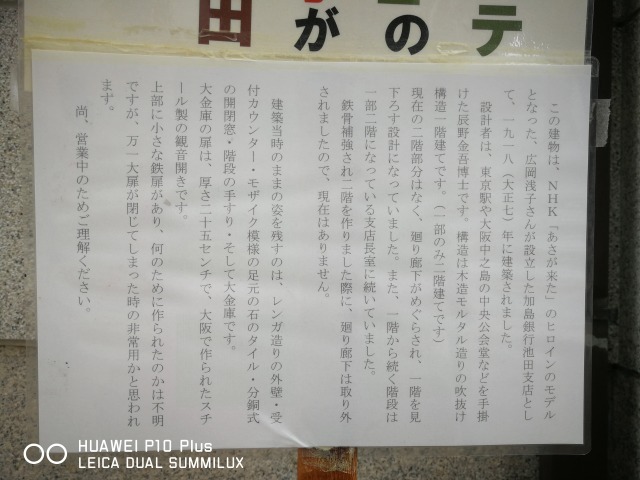 テ
の
が
田
この建物は、NHK「あさが来た」のヒロインのモデル
となった、広岡浅子さんが設立した加島銀行池田支店とし
て、一九一八(大正七)年に建築されました。
設計者は、東京駅や大阪中之島の中央公会堂などを手掛
けた辰野金吾博士です。構造は木造モルタル造りの吹抜け
構造一階建てです。(一部のみ二階建てです)
現在の二階部分はなく、廻り廊下がめぐらされ、一階を見
下ろす設計になっていました。また、一階から続く階段は
一部二階になっている支店長室に続いていました。
鉄骨補強され二階を作りました際に、廻り廊下は取り外
されましたので、現在はありません。
建築当時のままの姿を残すのは、レンガ造りの外壁・受
付カウンター・モザイク模様の足元の石のタイル・分銅式
の開閉窓・階段の手すり・そして大金庫です。
大金庫の扉は、厚さ二十五センチで、大阪で作られたスチ
ール製の観音開きです。
上部に小さな鉄扉があり、何のために作られたのかは不明
ですが、万一大扉が閉じてしまった時の非常用かと思われ
ます。
尚、営業中のためご理解ください。
HUAWEI P10 Plus
LEICA DUAL SUMMILUX